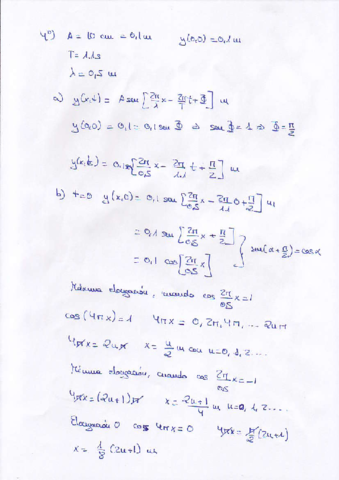 4º) A = 10 cm = 0,1 m y(0,0) = 0,1 m
T = 1.1 s
λ = 0,5 m
a) y(x,t) = A sen [2π/λ x - 2π/T t + Φ] m
y(0,0) = 0,1 = 0,1 sen Φ ⇒ sen Φ = 1 ⇒ Φ = π/2
y(x,t) = 0,1 sen [2π/0,5 x - 2π/1,1 t + π/2] m
b) t=0 y(x,0) = 0,1 sen [2π/0,5 x - 2π/1,1 0 + π/2] m
= 0,1 sen [2π/0,5 x + π/2] } sen(α + π/2) = cos α
= 0,1 cos [2π/0,5 x]
Máxima elongación, cuando cos 2π/0,5 x = 1
cos (4πx) = 1 4πx = 0, 2π, 4π, ... 2nπ
4πx = 2nπ x = n/2 m con n=0, 1, 2....
Mínima elongación, cuando cos 2π/0,5 x = -1
4πx = (2n+1)π x = 2n+1/4 m n=0, 1, 2....
Elongación 0 cos 4πx = 0 4πx = π/2 (2n+1)
x = 1/8 (2n+1) m